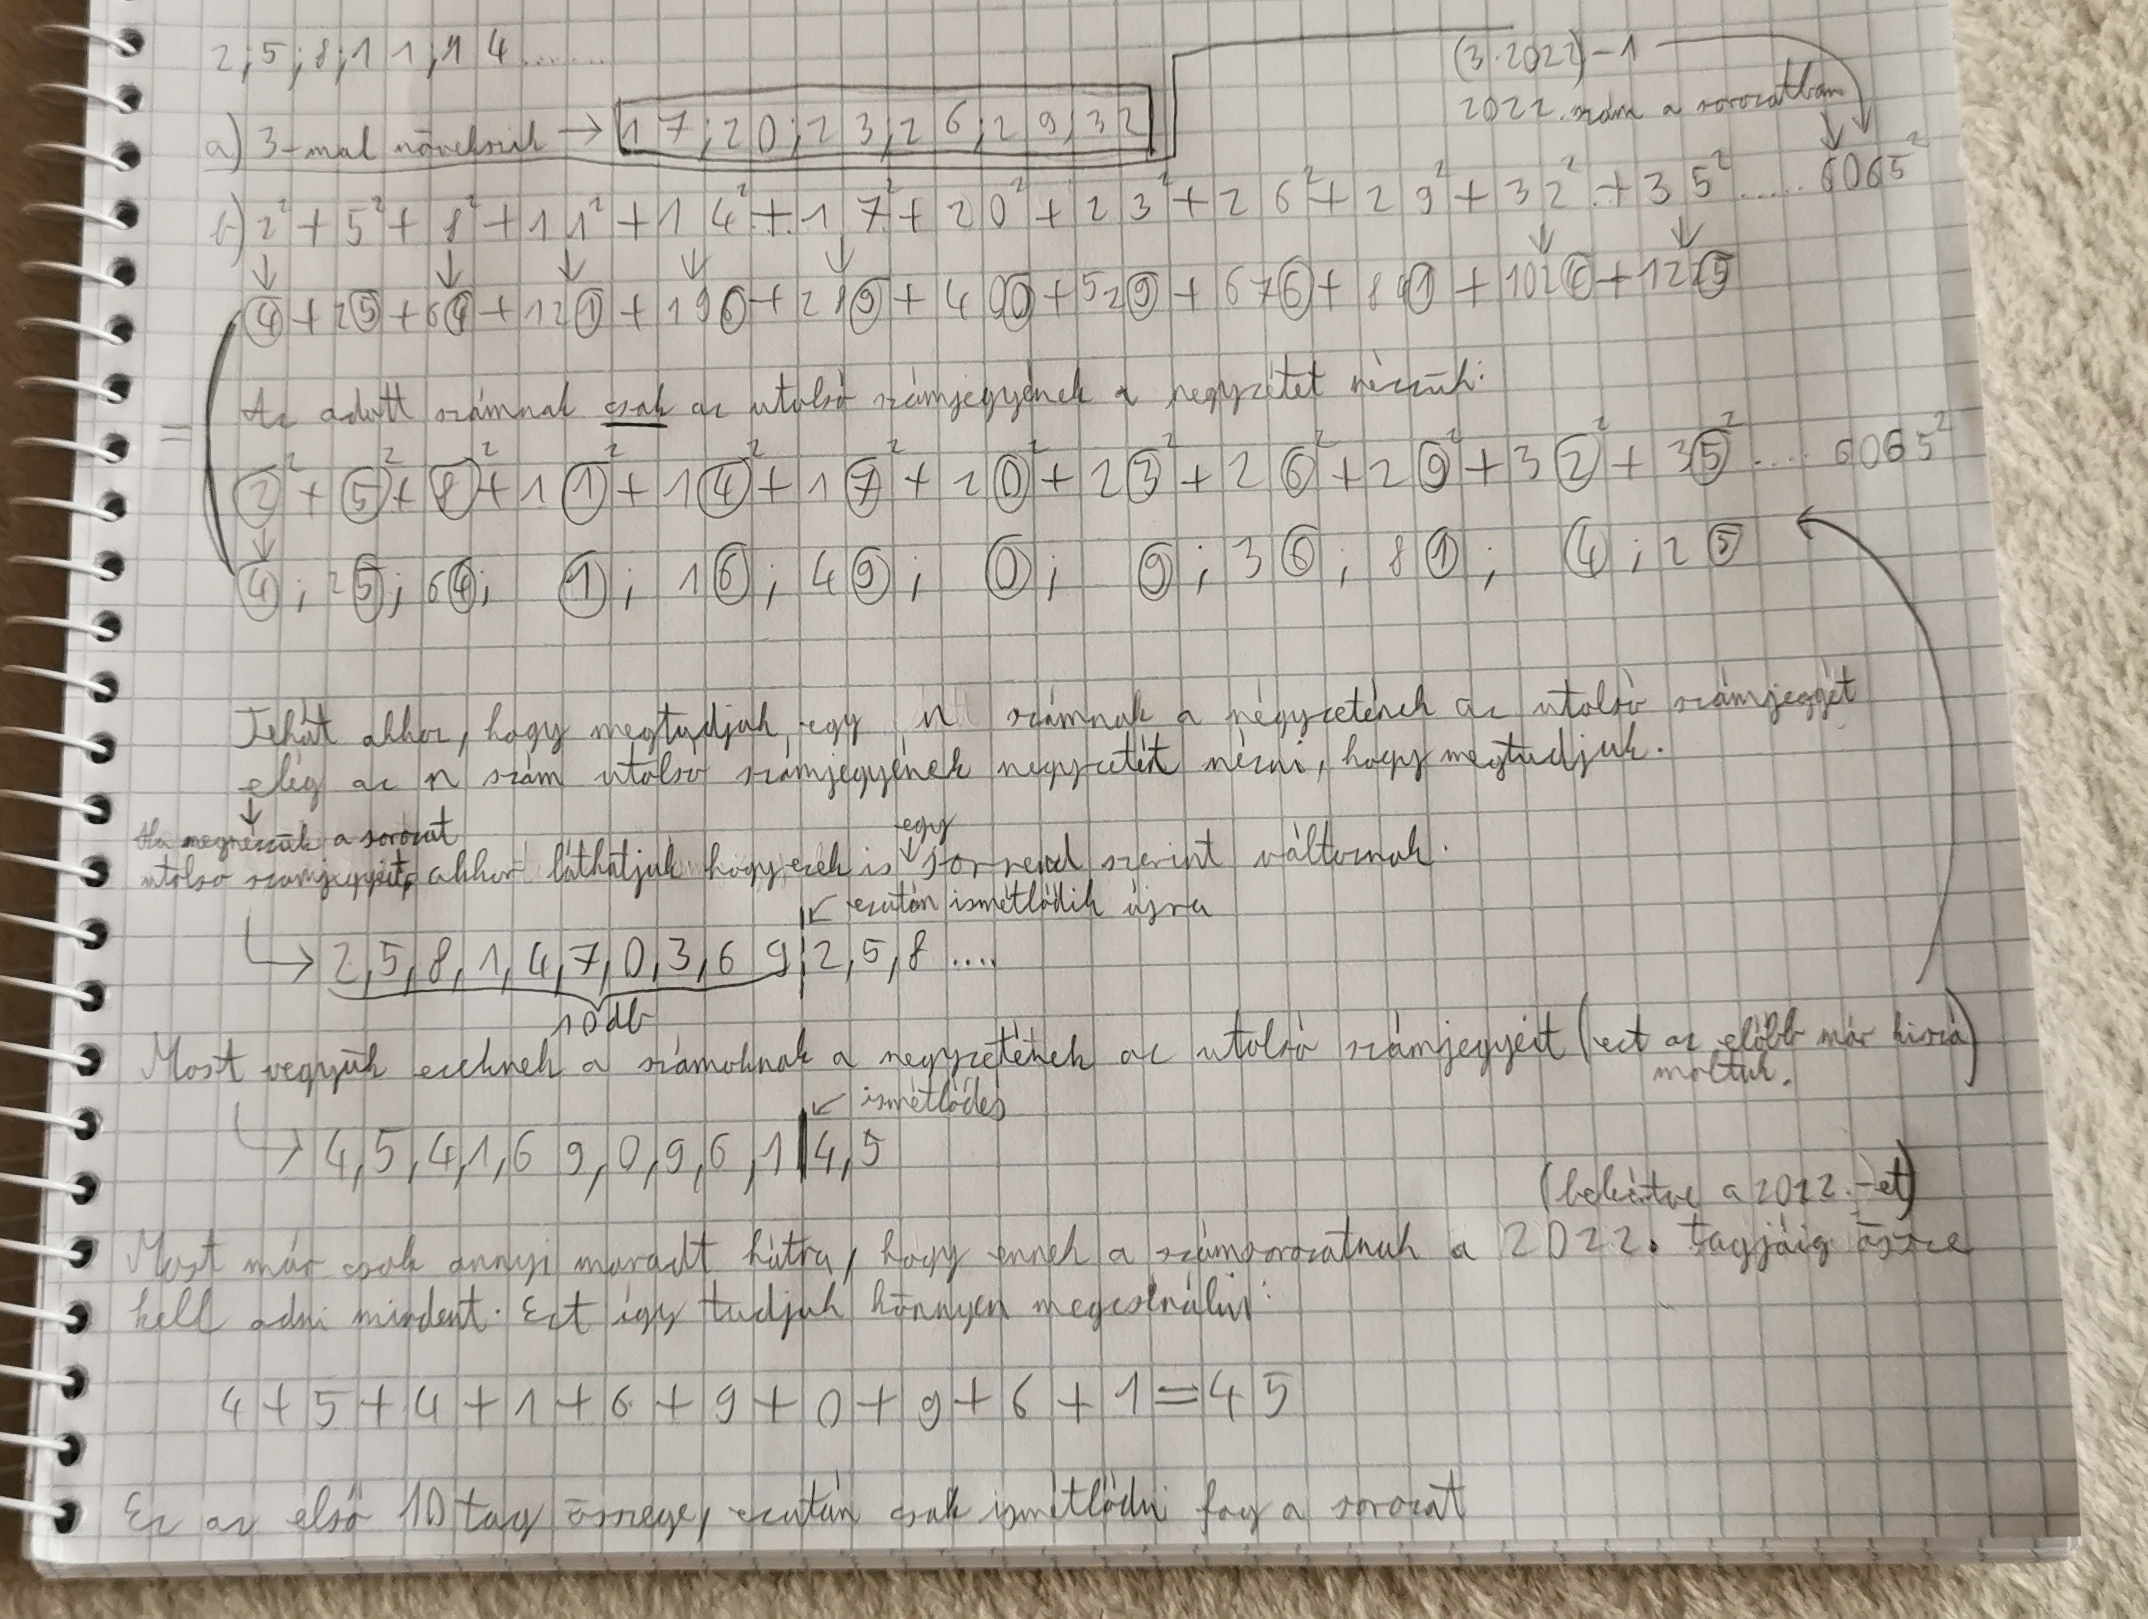 2;5;8;11;14......
(3·2022)-1
2022. szám a sorozatban
a) 3-mal növekszik → 17;20;23;26;29;32
b) 2²+5²+8²+11²+14²+17²+20²+23²+26²+29²+32²+35²..... 6065²
4+25+64+121+196+289+400+529+676+841+1024+1225
Az adott számnak csak az utolsó számjegyének a negyzetét nézzük:
= 2²+5²+8²+11²+14²+17²+20²+23²+26²+29²+32²+35².... 6065²
4; 25; 64; 1; 16; 49; 0; 9; 36; 81; 4; 25
Tehát ahhoz, hogy megtudjuk egy n számnak a négyzetének az utolsó számjegyét
elég az n szám utolsó számjegyének negyzetét nézni, hogy megtudjuk.
Ha megnézzük a sorozat
utolsó számjegyeit, akkor láthatjuk hogy ezek is egy sorrend szerint változnak.
ezután ismétlődik újra
→ 2,5,8,1,4,7,0,3,6 9,2,5,8 ....
10 db
Most vegyük ezeknek a számoknak a negyzetének az utolsó számjegyeit (ezt az előbb már kiszá
moltuk.)
ismétlődés
→ 4,5,4,1,6 9,0,9,6,1|4,5
(beleértve a 2022.-et)
Most már csak annyi maradt hátra, hogy ennek a számsorozatnak a 2022. tagjáig össze
kell adni mindent. Ezt így tudjuk könnyen megcsinálni:
4+5+4+1+6+9+0+9+6+1=45
Ez az első 10 tag összege, ezután csak ismétlődni fog a sorozat